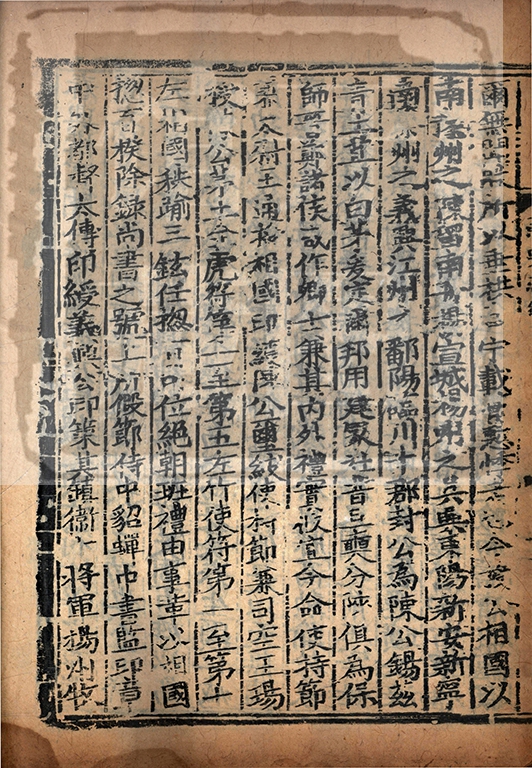 爾無 所以垂 宇載 今授公相國以
南豫州之陳留南丹陽宣城揚州之吳興東陽新安新寧
南徐州之義興江州之鄱陽臨川十郡封公為陳公錫茲
青土苴以白茅爰定爾邦用建冢社昔旦奭分陝俱為保
師晉鄭諸侯咸作卿士兼其内外禮實攸宜今命使持節
兼太尉王通授相國印綬陳公璽紱使持節兼司空王瑒
授陳公茅土金虎符第一至第五左竹使符第一至第十
左相國秩踰三鉉任揔百司位絶朝班禮由事革以相國
揔百揆除録尚書之號上所假節侍中貂蟬中書監印章
中外都督太傅印綬義興公印策其鎮衛大將軍揚州牧